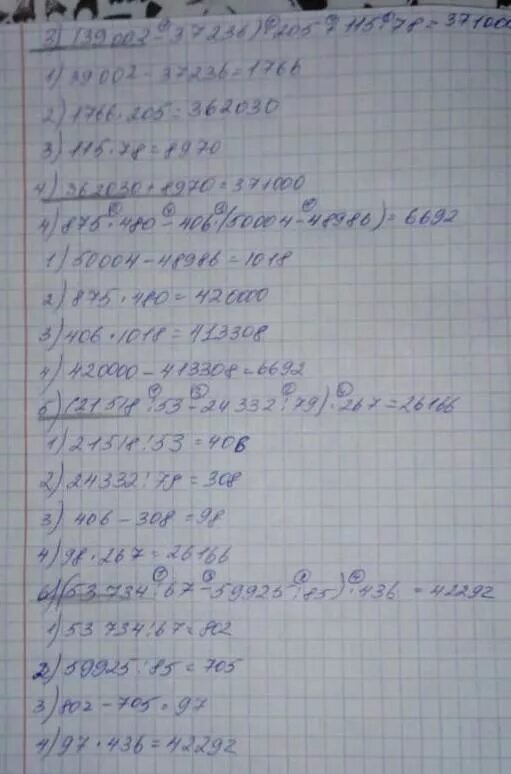 3) (39002-37236)·205+115·78=371000
1) 39002-37236=1766
2) 1766·205=362030
3) 115·78=8970
4) 362030+8970=371000
4) 875·480-406·(50004-48986)=6692
1) 50004-48986=1018
2) 875·480=420000
3) 406·1018=413308
4) 420000-413308=6692
5) (21518:53-24332:79)·267=26166
1) 21518:53=406
2) 24332:79=308
3) 406-308=98
4) 98·267=26166
6) (53734:67-59925:85)·436=42292
1) 53734:67=802
2) 59925:85=705
3) 802-705=97
4) 97·436=42292